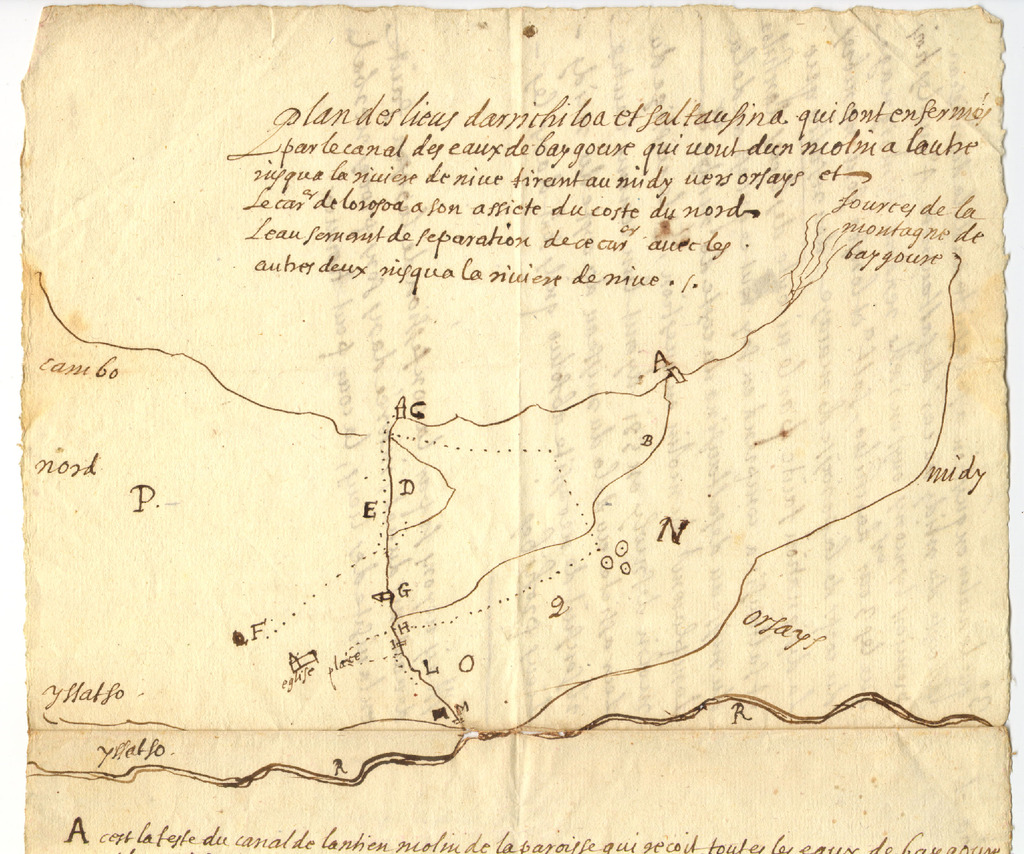 plan des lieus darrichiloa et saltausina qui sont enfermés
par le canal des eaux de baygoure qui vont dun molin a lautre
iusqua la riviere de nive tirent au midy vers orsays et
le car.er de lorosoa a son assiete du coste du nord
Leau servant de separation de ce car.er avec les
autres deux iusqua la riviere de nive . /.
sources de la
montagne de
baygoure
A
cambo
C
B
nord
midy
P.
D
E
N
G
F
2
H
orsays
I
eglise
place
L
O
yssatso
M
R
yssatso.
R
A cest la teste du canal de lantien molin de la paroisse qui reçoit toutes les eaux de baygoure